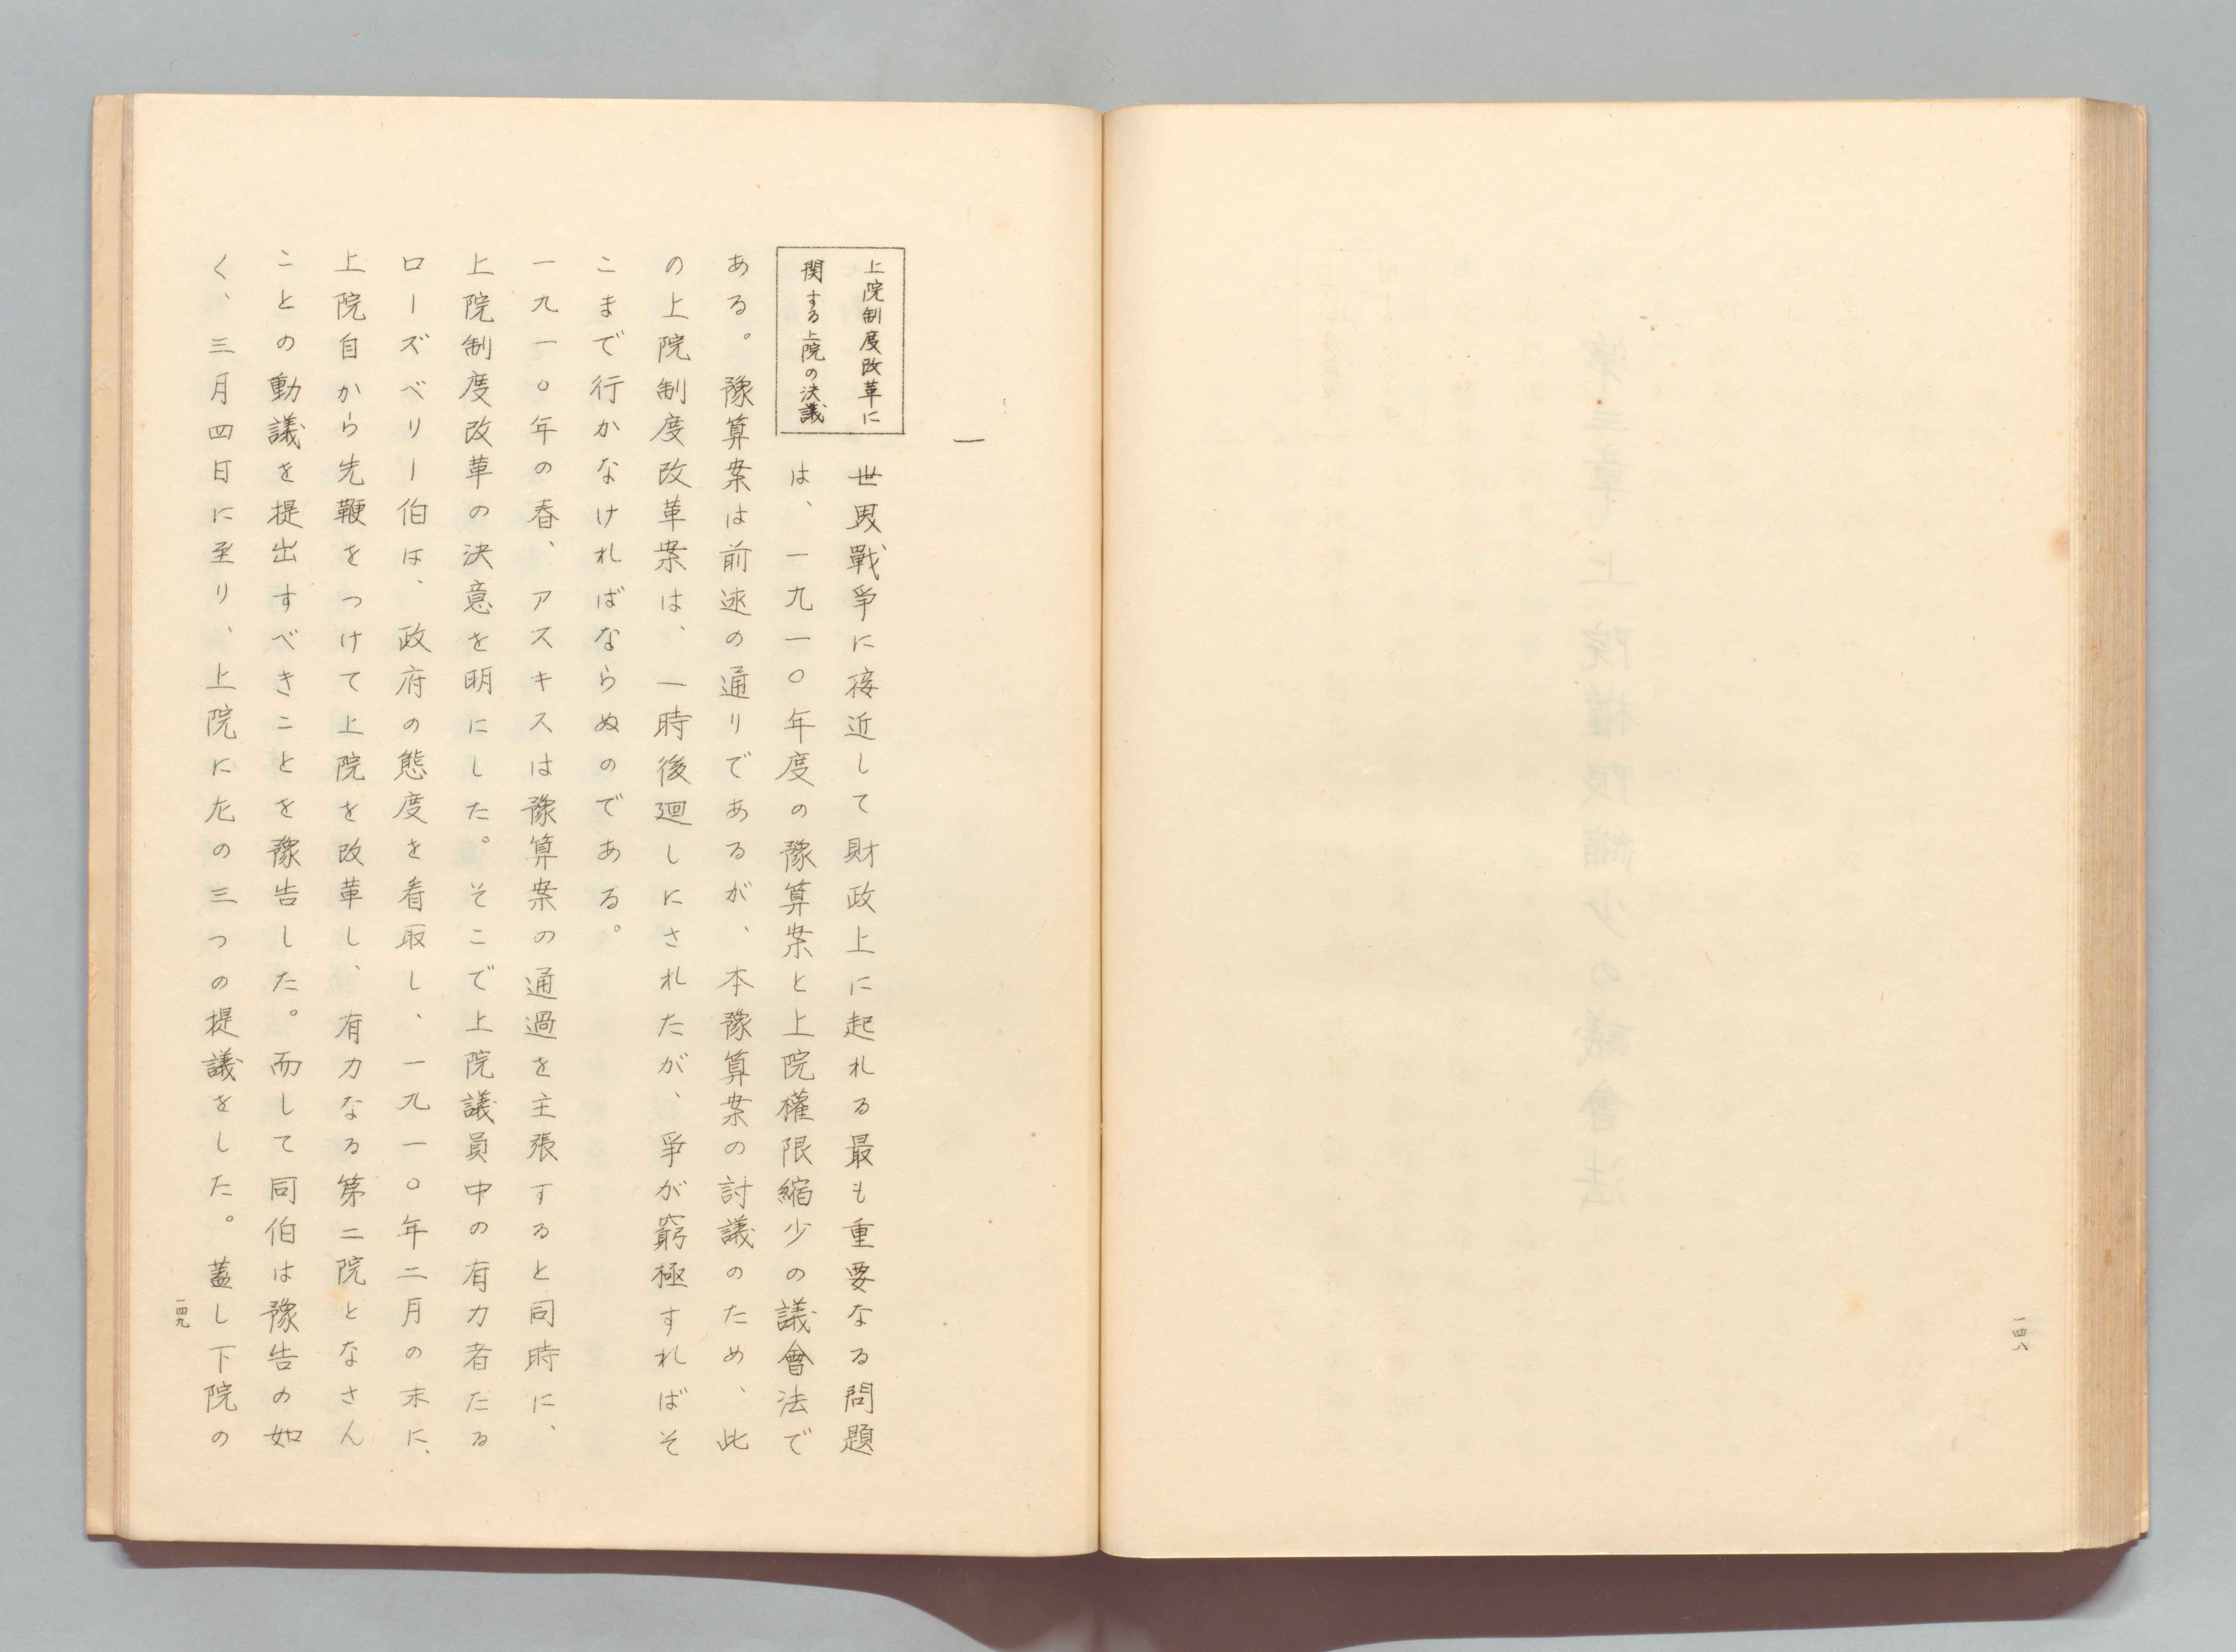 一四八
一
上院制度改革に
関する上院の決議
世界戰爭に接近して財政上に起れる最も重要なる問題
は、一九一〇年度の豫算案と上院權限縮少の議會法で
ある。豫算案は前述の通りであるが、本豫算案の討議のため、此
の上院制度改革案は、一時後廻しにされたが、爭が窮極すればそ
こまで行かなければならぬのである。
一九一〇年の春、アスキスは豫算案の通過を主張すると同時に、
上院制度改革の決意を明にした。そこで上院議員中の有力者たる
ローズベリー伯は、政府の態度を看取し、一九一〇年二月の末に、
上院自から先鞭をつけて上院を改革し、有力なる第二院となさん
ことの動議を提出すべきことを豫告した。而して同伯は豫告の如
く、三月四日に至り、上院に左の三つの提議をした。蓋し下院の
一四九